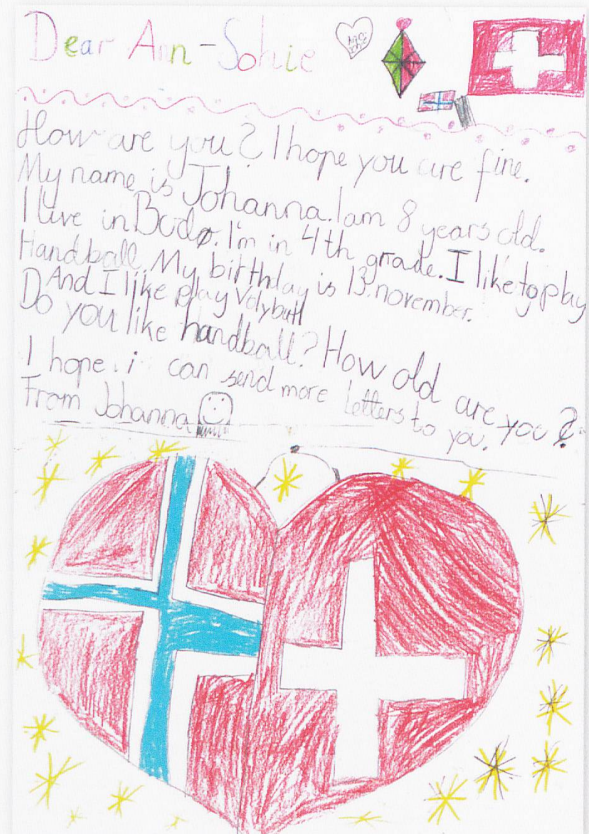 Dear Ann-Sohie
How are you? I hope you are fine.
My name is Johanna. I am 8 years old.
I live in Bodø. I'm in 4th grade. I like to play
Handball. My birthday is 13. november.
And I like play Volyball
Do you like handball? How old are you?
I hope i can send more letters to you.
From Johanna